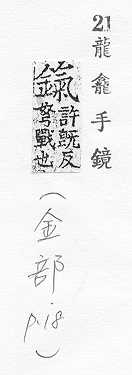 21 龍龕手鏡
許旣反
戰也
(金部 p.18)